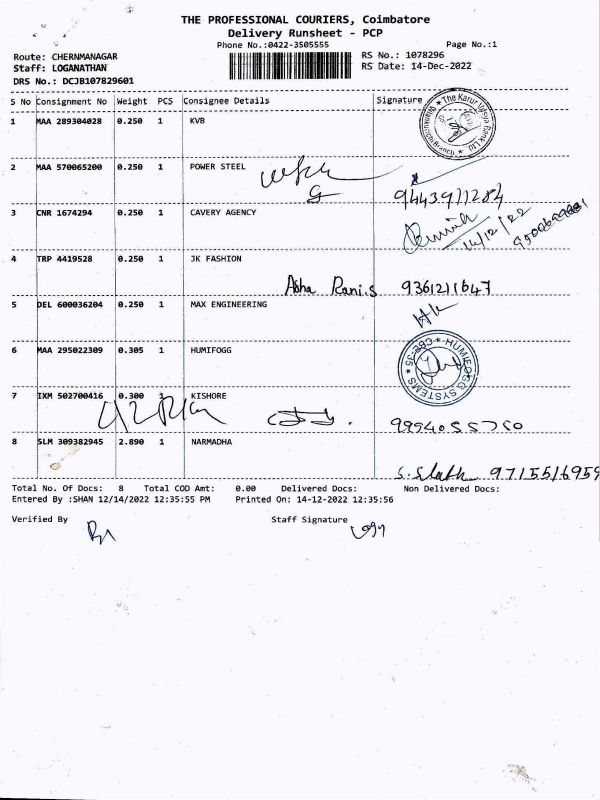 THE PROFESSIONAL COURIERS, Coimbatore
Delivery Runsheet - PCP
Phone No.:0422-3505555
Page No.:1
Route: CHERNMANAGAR
RS No.: 1078296
Staff: LOGANATHAN
RS Date: 14-Dec-2022
DRS No.: DCJB107829601
S No Consignment No Weight PCS Consignee Details Signature
1 MAA 289304028 0.250 1 KVB
The Karur Vysya Bank Ltd
2 MAA 570065200 0.250 1 POWER STEEL
9443911284
3 CNR 1674294 0.250 1 CAVERY AGENCY
14/12/22
4 TRP 4419528 0.250 1 JK FASHION
Asha Rani.S 9361211647
5 DEL 600036204 0.250 1 MAX ENGINEERING
6 MAA 295022309 0.305 1 HUMIFOGG
HUMIFOGG SYSTEMS * CBE-35 *
7 IXM 502700416 0.300 1 KISHORE
8 SLM 309382945 2.890 1 NARMADHA
9715516959
Total No. Of Docs: 8 Total COD Amt: 0.00 Delivered Docs: Non Delivered Docs:
Entered By :SHAN 12/14/2022 12:35:55 PM Printed On: 14-12-2022 12:35:56
Verified By Staff Signature